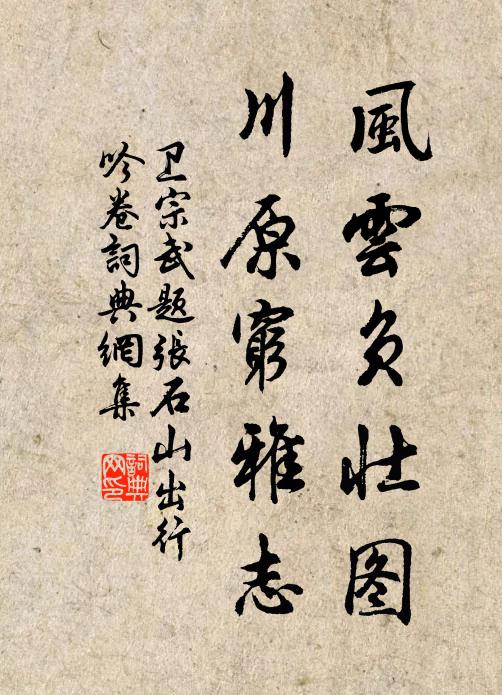 風雲負壯图
川原窮雅志
卫宗武题張石山出行
吟卷詞典網集
詞典
网印